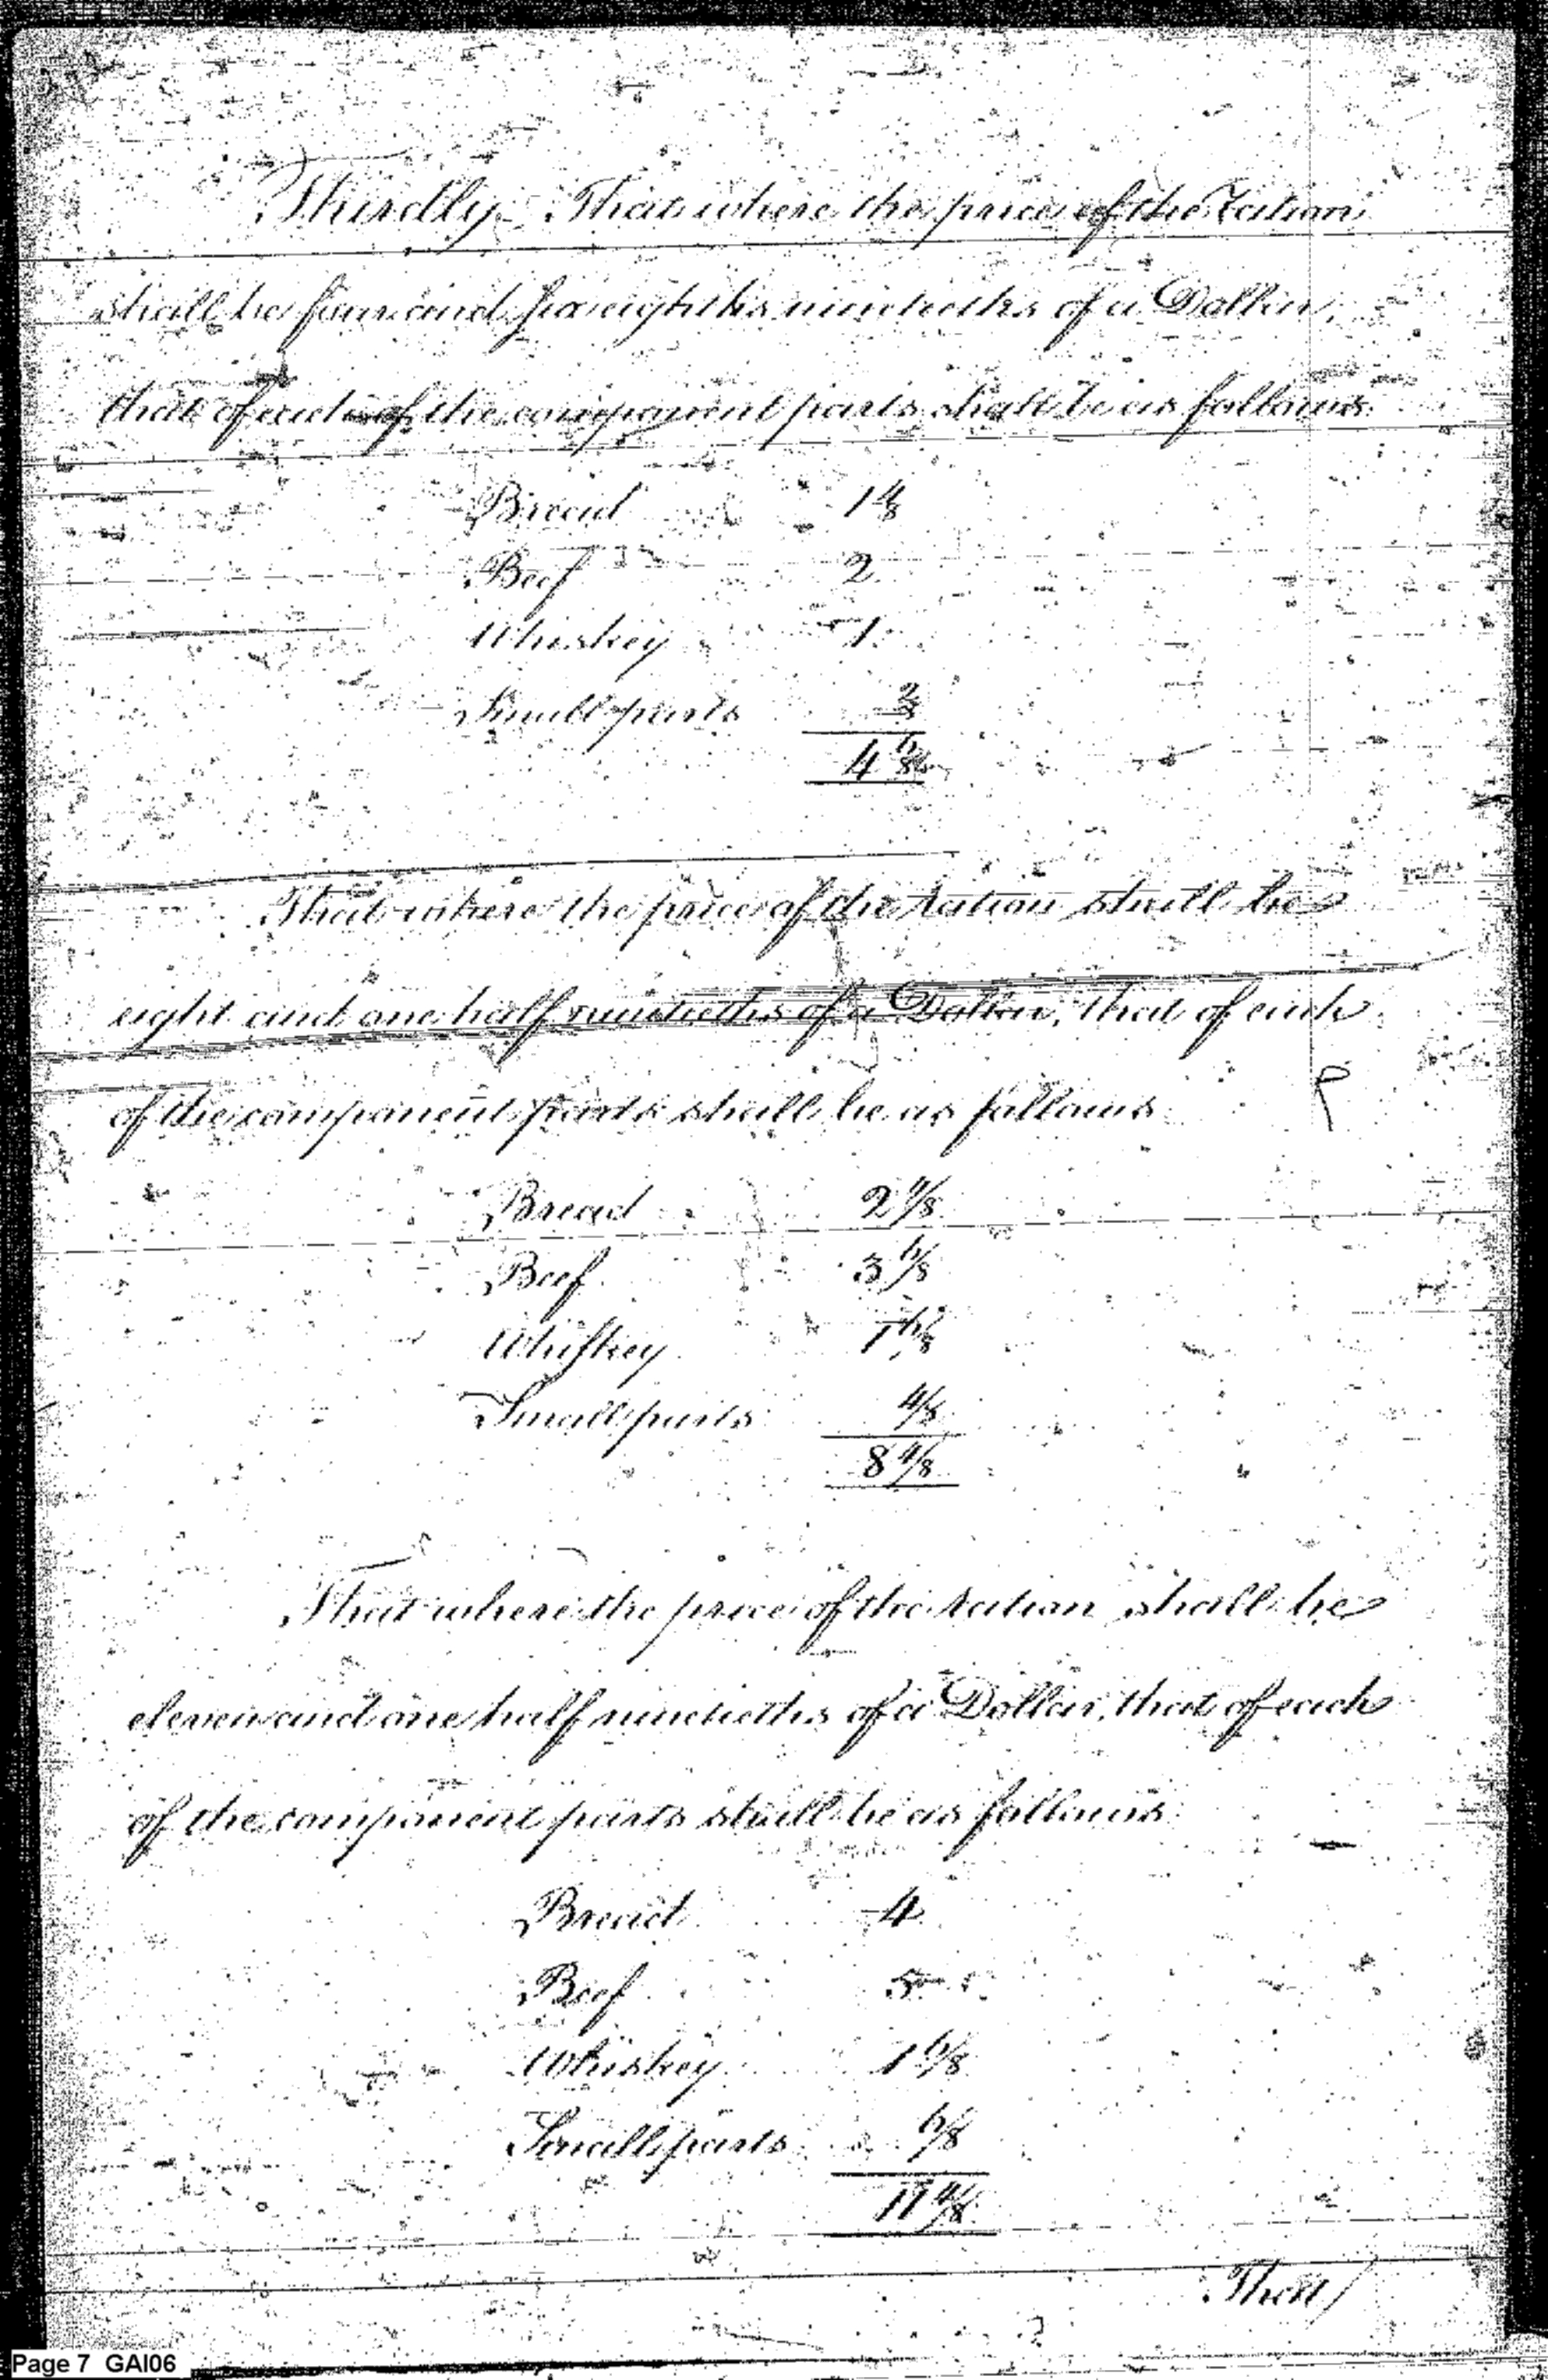 Thirdly. That where the price of the Ration
shall be four and six eighths ninetieths of a Dollar,
that of each of the component parts shall be as follows.
Bread 1 4/8
Beef 2
Whiskey 1
Small parts 2/8
4 6/8
That where the price of the Ration shall be
eight and one half ninetieths of a Dollar, that of each
of the component parts shall be as follows
Bread 2 4/8
Beef 3 6/8
Whiſkey 1 6/8
Small parts 4/8
8 4/8
That where the price of the Ration shall be
eleven and one half ninetieths of a Dollar, that of each
of the component parts shall be as follows
Bread 4
Beef 5
Whiskey 1 6/8
Small parts 6/8
11 4/8
That/
Page 7 GAI06